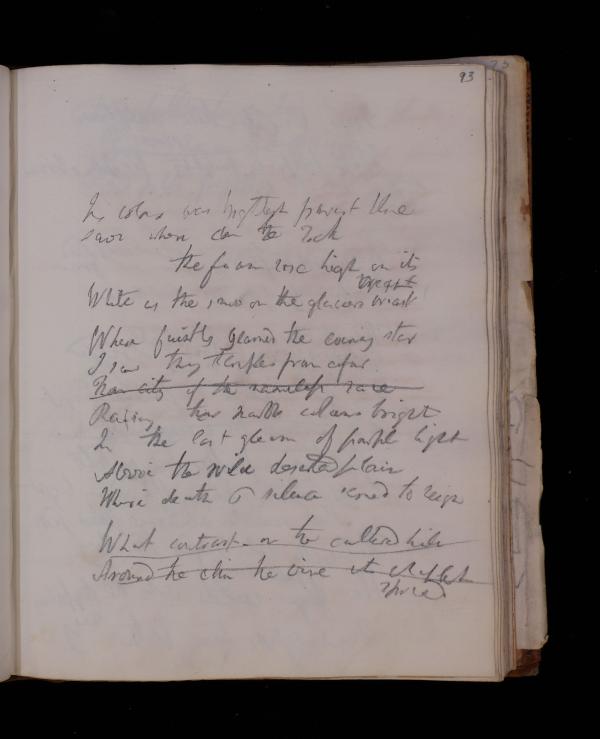 93
Its colour was brightest purest blue
save where on the rock
the foam rose high on its
breast
White as the snow on the glaciers breast
Where faintly gleamed the evening star
I saw thy temples from afar
city of the nameless race
Raising their marble columns bright
In the last gleam of purple light
Above the wild deserted plain
Where death & silence seemed to reign
What contrast on the cultured hills
Around the elm the vine its